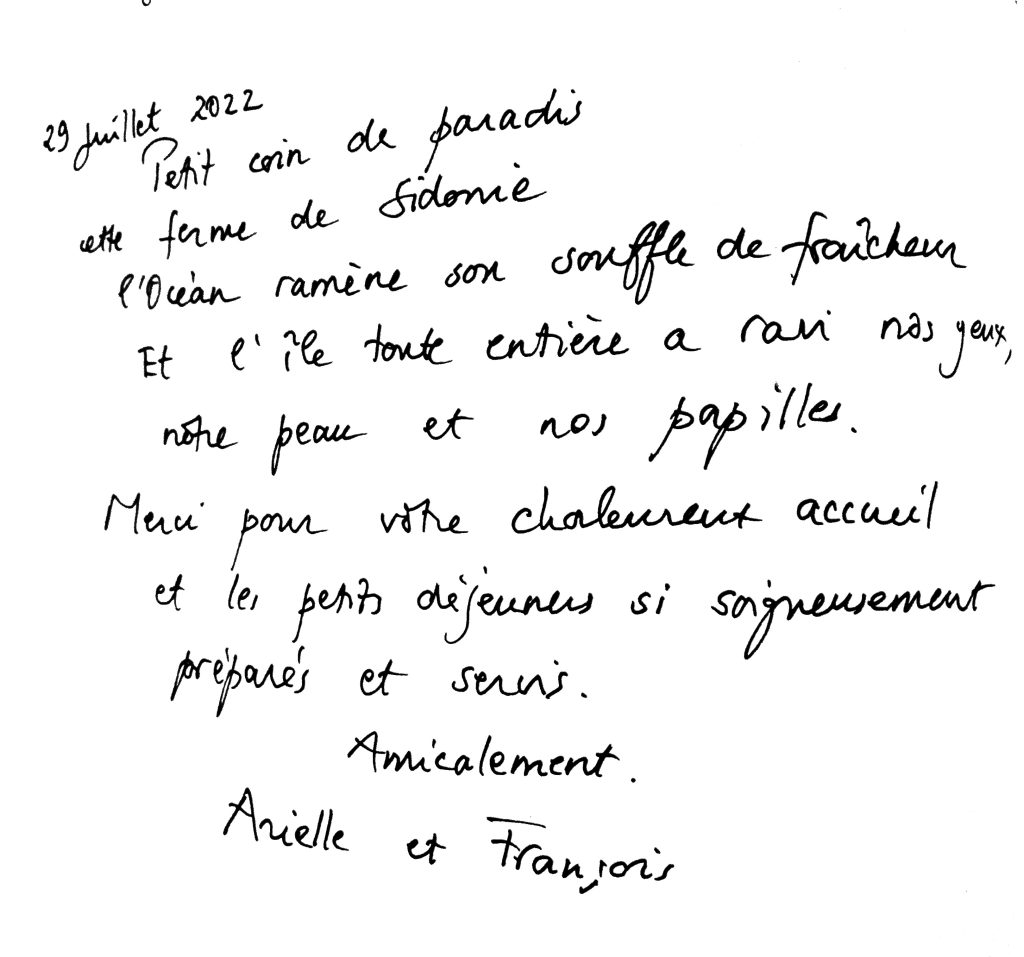 29 Juillet 2022
Petit coin de paradis
cette ferme de Sidonie
l'Océan ramène son souffle de fraîcheur
Et l'île toute entière a ravi nos yeux,
nôtre peau et nos papilles.
Merci pour vôtre chaleureux accueil
et les petits déjeuners si soigneusement
préparés et servis.
Amicalement.
Arielle et François